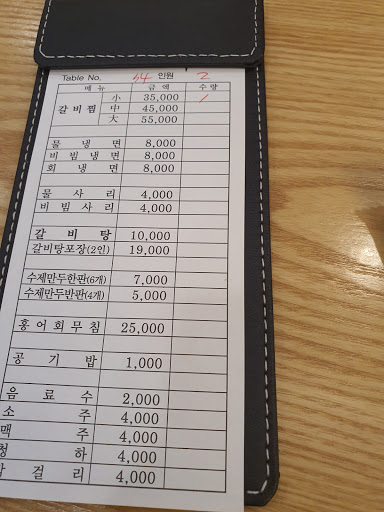 Table No. 34 인원 2
메뉴 금액 수량
갈비찜 小 35,000 /
中 45,000
大 55,000
물냉면 8,000
비빔냉면 8,000
회냉면 8,000
물사리 4,000
비빔사리 4,000
갈비탕 10,000
갈비탕포장(2인) 19,000
수제만두한판(6개) 7,000
수제만두반판(4개) 5,000
홍어회무침 25,000
공기밥 1,000
음료수 2,000
소주 4,000
맥주 4,000
청하 4,000
걸리 4,000